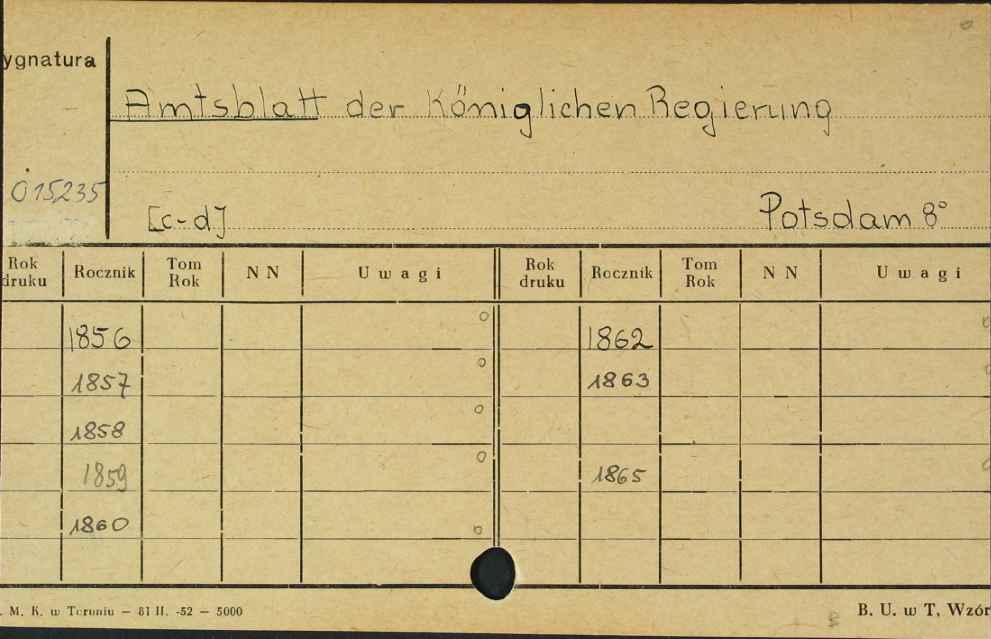 ygnatura
Amtsblatt der Königlichen Regierung
015235
[c-d] Potsdam 8°
Rok druku Rocznik Tom Rok NN Uwagi Rok druku Rocznik Tom Rok NN Uwagi
1856 o 1862 o
1857 o 1863 o
1858 o
1859 o 1865 o
1860 o
. M. K. w Toruniu — 81 II. -52 — 5000 B. U. w T, Wzór